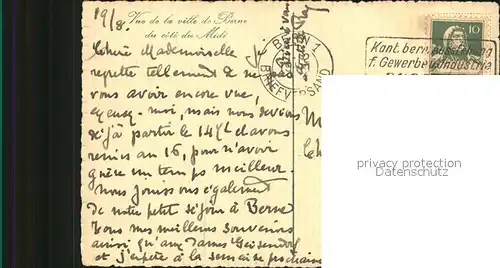 19/8.
Vue de la ville de Berne
du côté du Midi
Chère Mademoiselle je
regrette tellement de ne
vous avoir encore vue,
excusez-moi, mais nous devions
déjà partir le 14 et avons
remis au 16, pour n'avoir
guère un temps meilleur.
Nous jouissons également
de notre petit séjour à Berne
Tous mes meilleurs souvenirs
ainsi qu'aux Dames Geisendorf
et j'espère à la semaine prochaine
BERN 1
BRIEFVERSAND
Kant. bern. Ausstellung
f. Gewerbe u. Industrie
10
M
Ch
privacy protection
Datenschutz